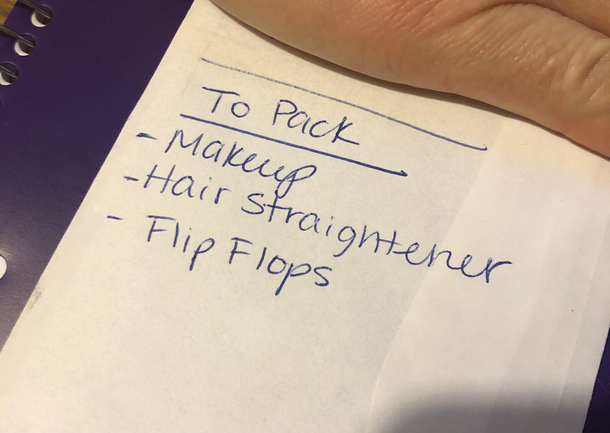 To Pack
- Makeup
- Hair Straightener
- Flip Flops